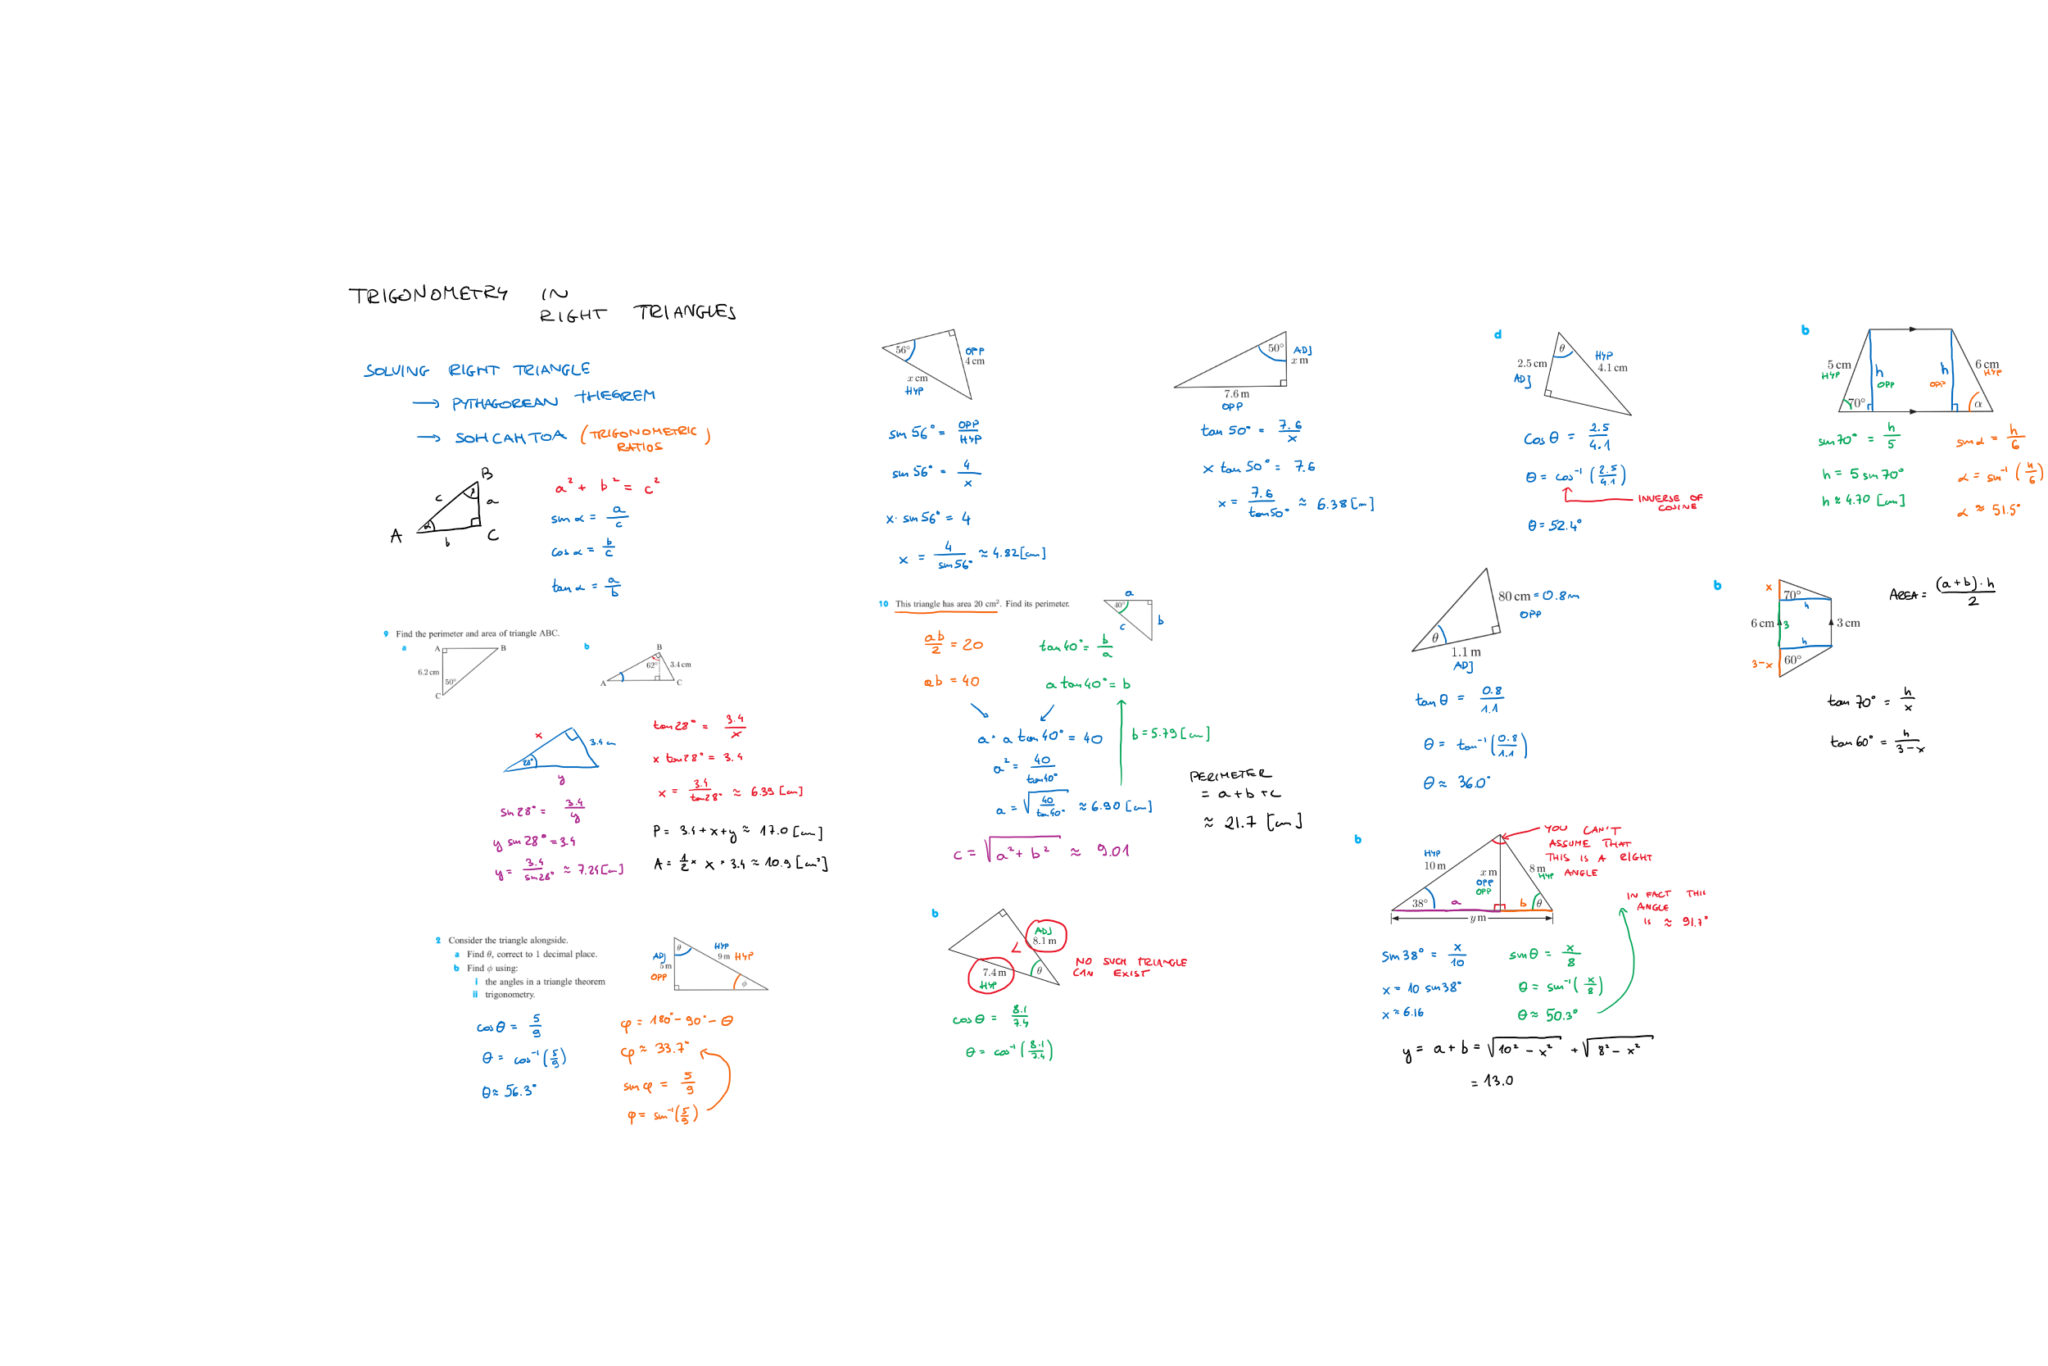 TRIGONOMETRY IN
RIGHT TRIANGLES
SOLVING RIGHT TRIANGLE
→ PYTHAGOREAN THEOREM
→ SOHCAHTOA (TRIGONOMETRIC RATIOS)
B
c
a
A
α
b
C
a² + b² = c²
sin α = a/c
cos α = b/c
tan α = a/b
9 Find the perimeter and area of triangle ABC.
a
A
B
6.2 cm
50°
C
b
B
62°
3.4 cm
A
C
x
3.4 cm
28°
y
tan 28° = 3.4/x
x tan 28° = 3.4
x = 3.4/tan 28° ≈ 6.39 [cm]
sin 28° = 3.4/y
y sin 28° = 3.4
y = 3.4/sin 28° ≈ 7.24 [cm]
P = 3.4 + x + y ≈ 17.0 [cm]
A = 1/2 · x · 3.4 ≈ 10.9 [cm²]
2 Consider the triangle alongside.
a Find θ, correct to 1 decimal place.
b Find φ using:
i the angles in a triangle theorem
ii trigonometry.
θ
ADJ
5 m
OPP
HYP
9 m HYP
φ
cos θ = 5/9
θ = cos⁻¹(5/9)
θ ≈ 56.3°
φ = 180° - 90° - θ
φ ≈ 33.7°
sin φ = 5/9
φ = sin⁻¹(5/9)
56°
OPP
4 cm
x cm
HYP
sin 56° = OPP/HYP
sin 56° = 4/x
x · sin 56° = 4
x = 4/sin 56° ≈ 4.82 [cm]
10 This triangle has area 20 cm². Find its perimeter.
a
40°
b
c
ab/2 = 20
ab = 40
tan 40° = b/a
a tan 40° = b
a · a tan 40° = 40
b = 5.79 [cm]
a² = 40/tan 40°
a = √(40/tan 40°) ≈ 6.90 [cm]
c = √(a² + b²) ≈ 9.01
PERIMETER
= a + b + c
≈ 21.7 [cm]
b
ADJ
8.1 m
<
7.4 m
HYP
θ
NO SUCH TRIANGLE
CAN EXIST
cos θ = 8.1/7.4
θ = cos⁻¹(8.1/7.4)
50°
ADJ
x m
7.6 m
OPP
tan 50° = 7.6/x
x tan 50° = 7.6
x = 7.6/tan 50° ≈ 6.38 [m]
d
θ
2.5 cm
ADJ
HYP
4.1 cm
cos θ = 2.5/4.1
θ = cos⁻¹(2.5/4.1)
INVERSE OF
COSINE
θ = 52.4°
80 cm = 0.8 m
OPP
θ
1.1 m
ADJ
tan θ = 0.8/1.1
θ = tan⁻¹(0.8/1.1)
θ ≈ 36.0°
b
YOU CAN'T
ASSUME THAT
THIS IS A RIGHT
ANGLE
HYP
10 m
x m
OPP
OPP
8 m
HYP
38°
a
b
θ
y m
IN FACT THIS
ANGLE
IS ≈ 91.7°
sin 38° = x/10
x = 10 sin 38°
x ≈ 6.16
sin θ = x/8
θ = sin⁻¹(x/8)
θ ≈ 50.3°
y = a + b = √(10² - x²) + √(8² - x²)
= 13.0
b
5 cm
HYP
h
OPP
h
OPP
6 cm
HYP
70°
α
sin 70° = h/5
h = 5 sin 70°
h ≈ 4.70 [cm]
sin α = h/6
α = sin⁻¹(h/6)
α ≈ 51.5°
b
x
70°
h
6 cm
3
3 cm
h
3-x
60°
AREA = (a+b)·h/2
tan 70° = h/x
tan 60° = h/3-x